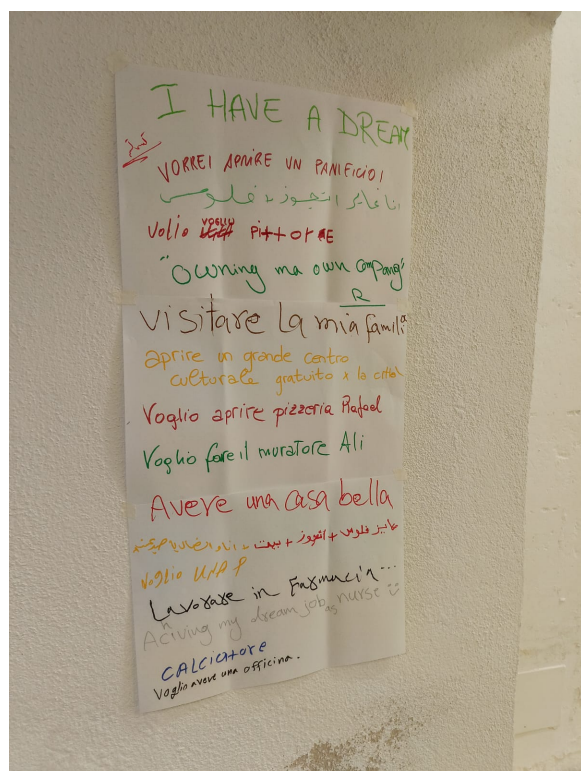 I HAVE A DREAM
VORREI APRIRE UN PANIFICIO!
انا عايز اتجوز + فلوس
Volio VOGLIO Pittore
"Owning ma own company"
R
visitare La mia familia
aprire un grande centro
culturale gratuito x la città
Voglio aprire pizzeria Rafael
Voglio fare il muratore Ali
Avere una casa bella
عايز فلوس + اتجوز + بيت
Voglio
Lavorare in Farmacia...
Aciving my dream job as nurse
CALCIATORE
Voglio avere una officina.